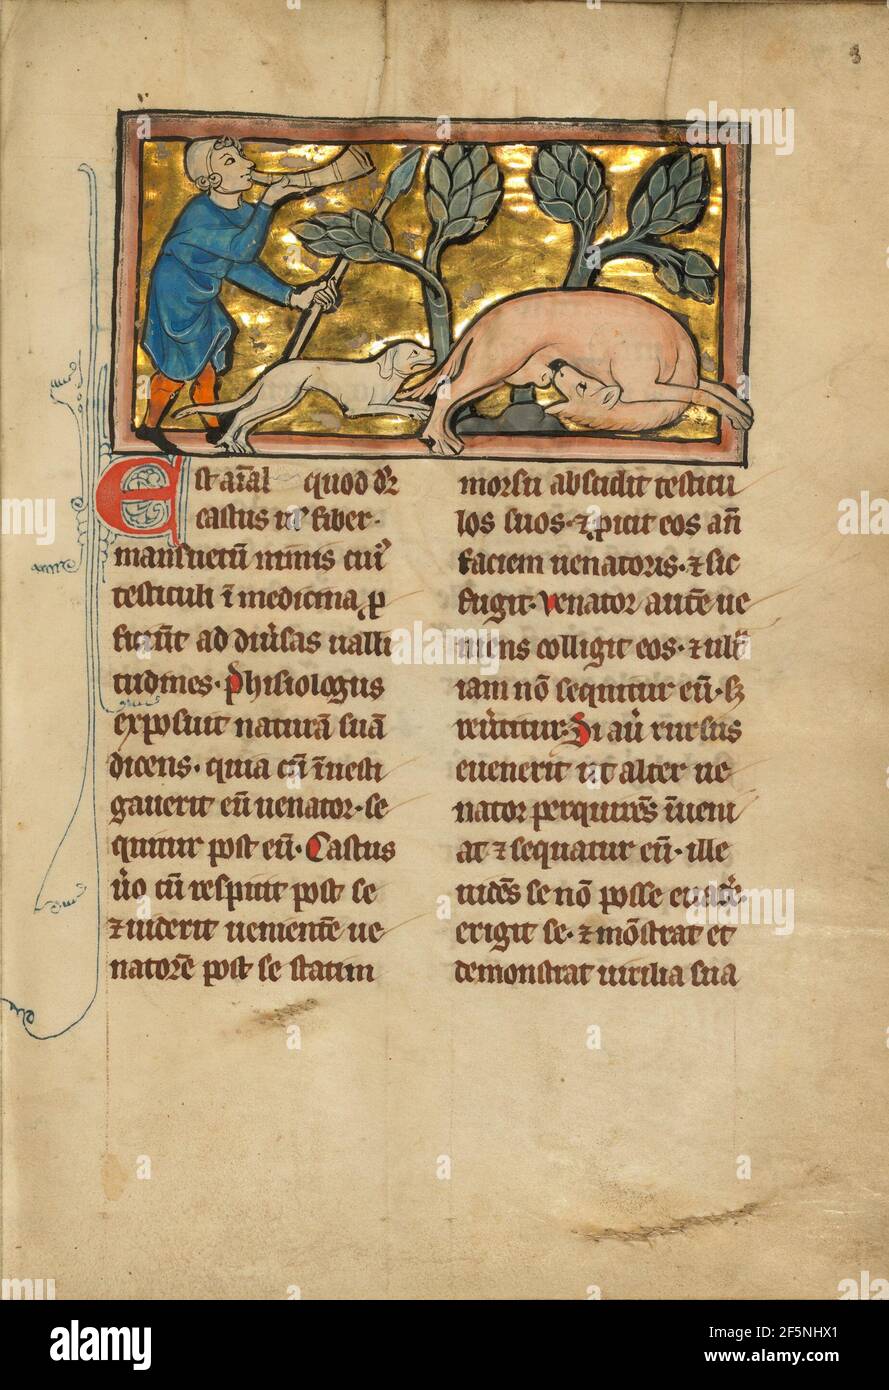 3
Est aīal quod dr̄
castus ul' fiber·
mansuetū nimis cui'
testiculi ī medicina ꝑ
ficiūt ad diu'sas ualli
tudines· Phisiologus
exposuit naturā suā
dicens· quia cū īuesti
gauerit eū uenator· se
quitur post eū· Castus
u'o cū respicit post se
⁊ uiderit uementē ue
natorē post se statim
morsu abscidit testicu
los suos· ⁊ ꝓicit eos an̄
faciem uenatoris· ⁊ sic
fugit· Venator autē ue
niens colligit eos· ⁊ ult'
iam nō sequitur eū· sꝫ
reu'titur· Si au' rursus
euenerit ut alter ue
nator perquirēs īueni
at ⁊ sequatur eū· ille
uidēs se nō posse euad'e·
erigit se· ⁊ mōstrat et
demonstrat uirilia sua
alamy
Image ID: 2F5NHX1
www.alamy.com